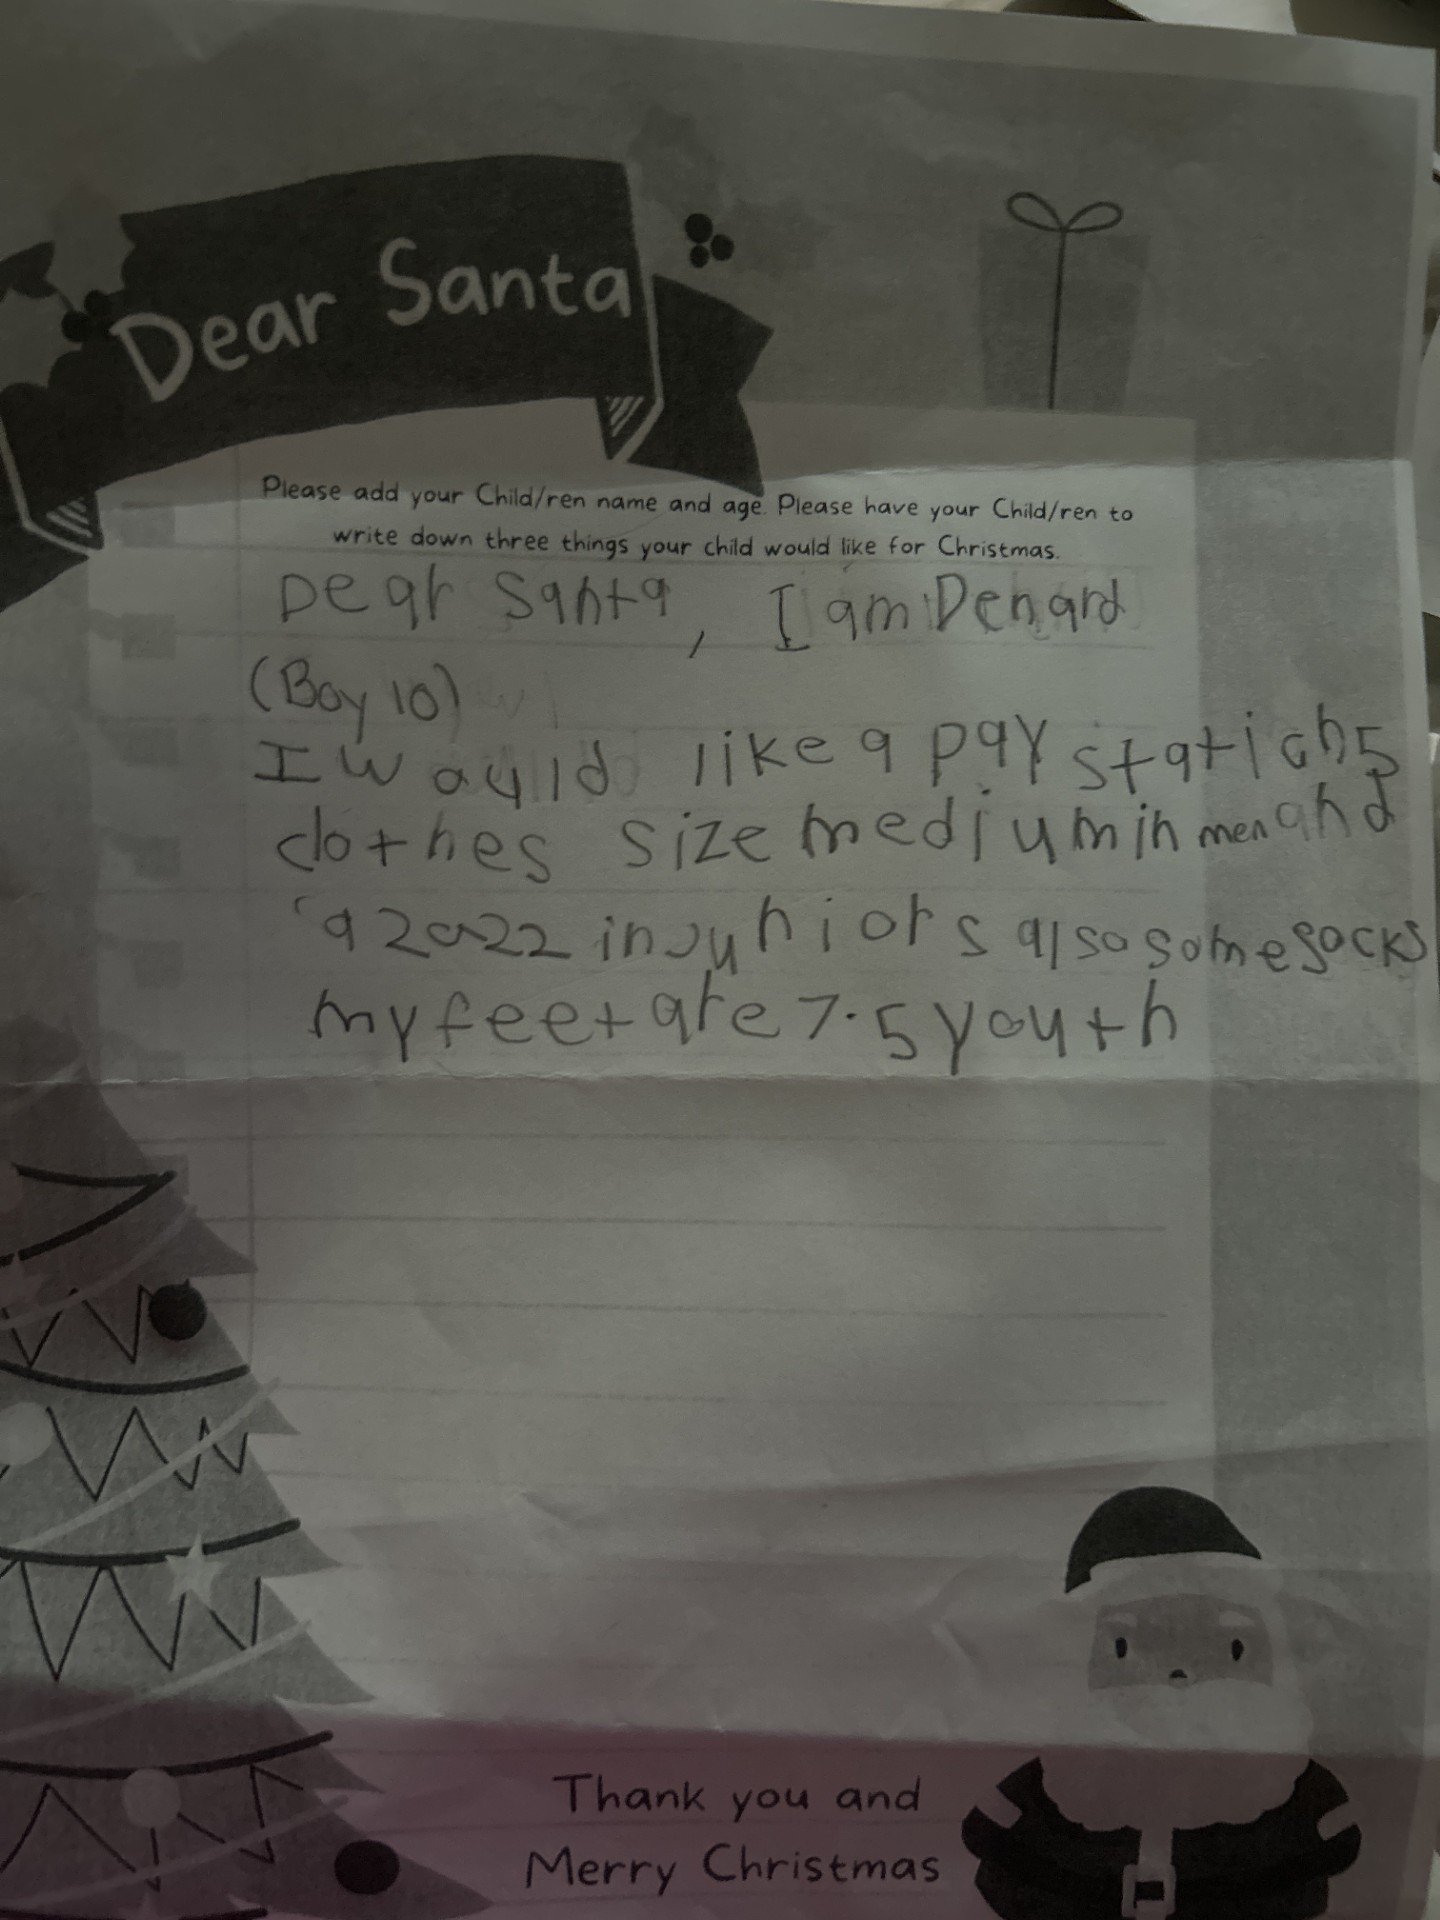 Dear Santa
Please add your Child/ren name and age. Please have your Child/ren to
write down three things your child would like for Christmas.
Dear Santa, I am Denard
(Boy 10)
I would like a pay station 5
clothes size medium in men and
a 20 22 in juniors also some socks
my feet are 7.5 youth
Thank you and
Merry Christmas